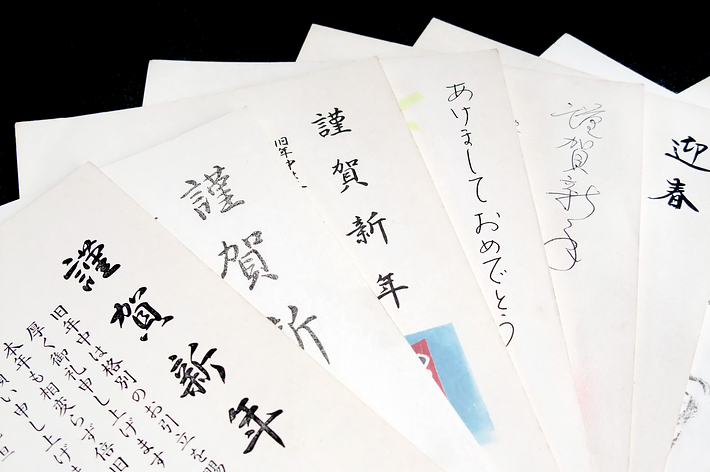 謹賀新年
旧年中は格別のお引立を賜
厚く御礼申し上げます
本年も相変らず倍旧
い申し上げ
謹賀新
謹賀新年
旧年中
あけましておめでとう
謹賀新年
迎春